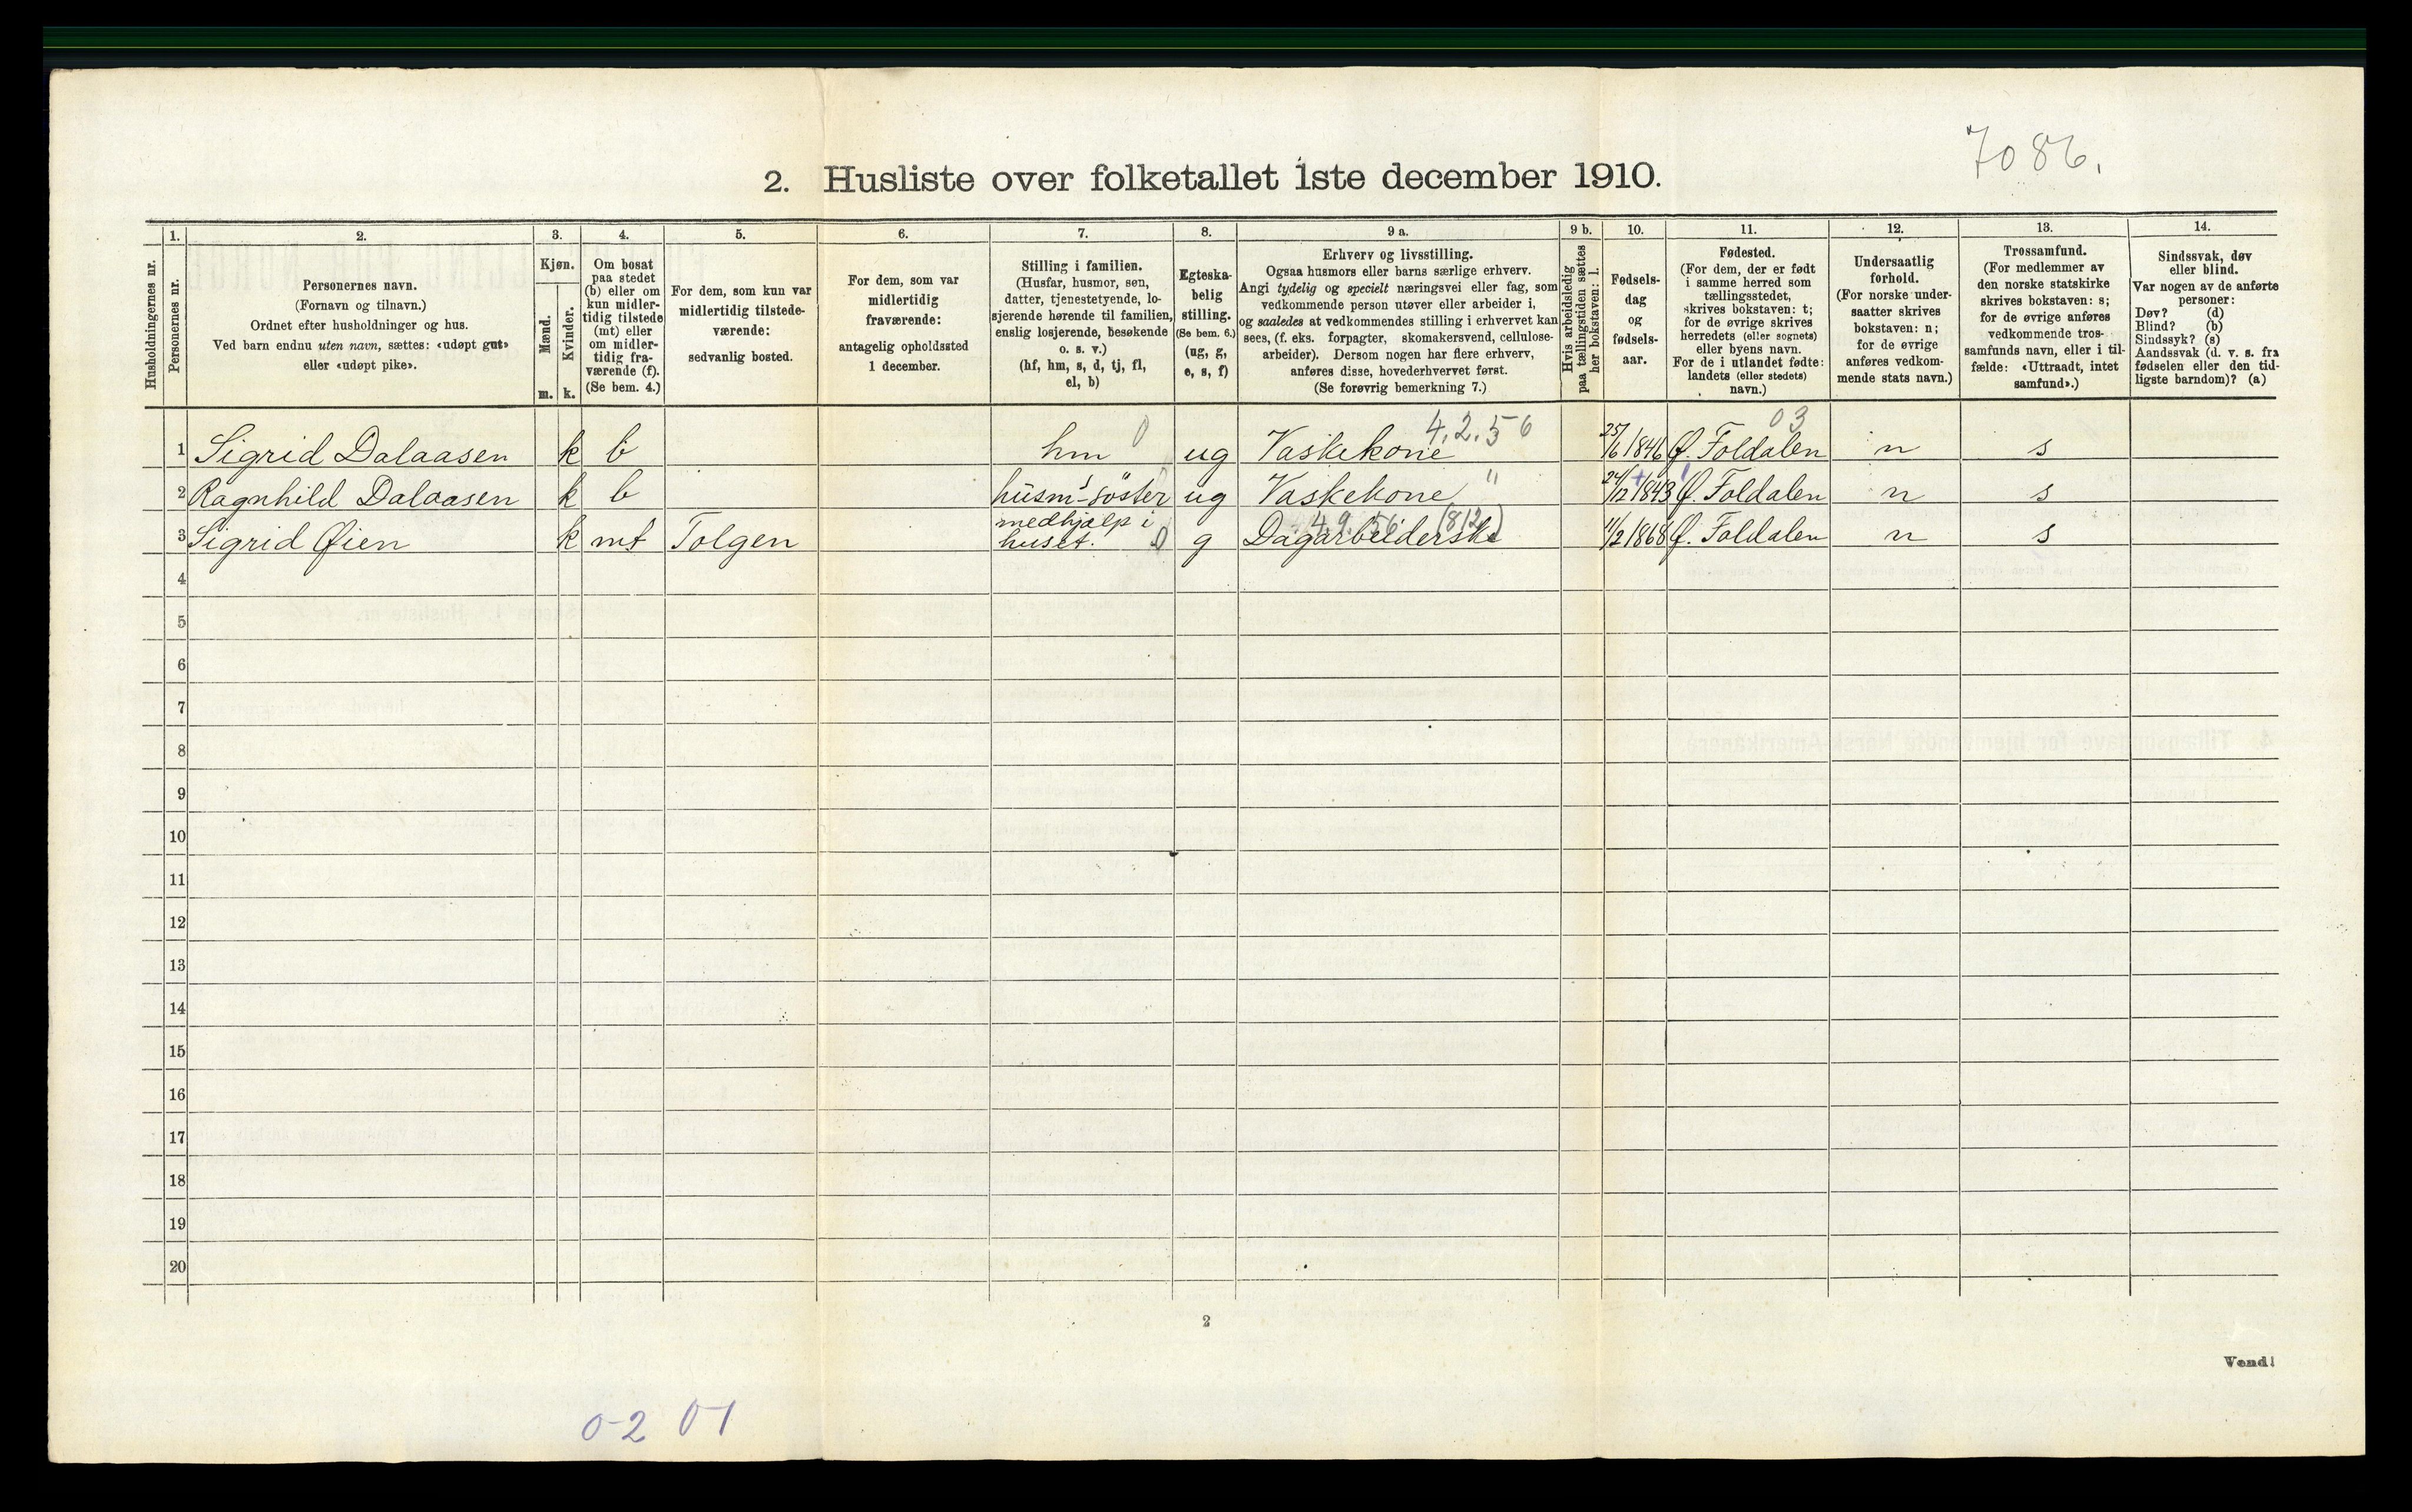 7086.
2. Husliste over folketallet 1ste december 1910.
Husholdningernes nr.
1.
Personernes nr.
2.
Personernes navn.
(Fornavn og tilnavn.)
Ordnet efter husholdninger og hus.
Ved barn endnu uten navn, sættes: «udøpt gut»
eller «udøpt pike».
3.
Kjøn.
Mænd.
Kvinder.
m. k.
4.
Om bosat
paa stedet
(b) eller om
kun midler-
tidig tilstede
(mt) eller
om midler-
tidig fra-
værende (f).
(Se bem. 4.)
5.
For dem, som kun var
midlertidig tilstede-
værende:
sedvanlig bosted.
6.
For dem, som var
midlertidig
fraværende:
antagelig opholdssted
1 december.
7.
Stilling i familien.
(Husfar, husmor, søn,
datter, tjenestetyende, lo-
sjerende hørende til familien,
enslig losjerende, besøkende
o. s. v.)
(hf, hm, s, d, tj, fl,
el, b)
8.
Egteska-
belig
stilling.
(Se bem. 6.)
(ug, g,
e, s, f)
9 a.
Erhverv og livsstilling.
Ogsaa husmors eller barns særlige erhverv.
Angi tydelig og specielt næringsvei eller fag, som
vedkommende person utøver eller arbeider i,
og saaledes at vedkommendes stilling i erhvervet kan
sees, (f. eks. forpagter, skomakersvend, cellulose-
arbeider). Dersom nogen har flere erhverv,
anføres disse, hovederhvervet først.
(Se forøvrig bemerkning 7.)
9 b.
Hvis arbeidsledig
paa tællingstiden sættes
her bokstaven: l.
10.
Fødsels-
dag
og
fødsels-
aar.
11.
Fødested.
(For dem, der er født
i samme herred som
tællingsstedet,
skrives bokstaven: t;
for de øvrige skrives
herredets (eller sognets)
eller byens navn.
For de i utlandet fødte:
landets (eller stedets)
navn.)
12.
Undersaatlig
forhold.
(For norske under-
saatter skrives
bokstaven: n;
for de øvrige
anføres vedkom-
mende stats navn.)
13.
Trossamfund.
(For medlemmer av
den norske statskirke
skrives bokstaven: s;
for de øvrige anføres
vedkommende tros-
samfunds navn, eller i til-
fælde: «Uttraadt, intet
samfund».)
14.
Sindssvak, døv
eller blind.
Var nogen av de anførte
personer:
Døv? (d)
Blind? (b)
Sindssyk? (s)
Aandssvak (d. v. s. fra
fødselen eller den tid-
ligste barndom)? (a)
0 4.2.56 03
1 Sigrid Dalaasen k b hm ug Vaskekone 25/6 1846 Ø. Foldalen n s
2 Ragnhild Dalaasen k b husm's-søster ug Vaskekone " 24/12 1843 Ø. Foldalen n s
medhjælp i 49.56 (812)
3 Sigrid Øien k mt Tolgen huset. 0 g Dagarbeiderske 11/2 1868 Ø. Foldalen n s
4
5
6
7
8
9
10
11
12
13
14
15
16
17
18
19
20
2
Vend!
0-2 0-1